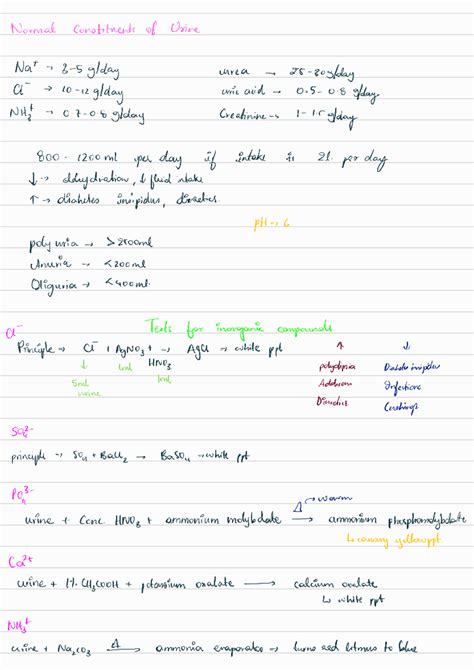 Normal Constituents of Urine
Na⁺ → 3-5 g/day urea → 25-30g/day
Cl⁻ → 10-12 g/day uric acid → 0.5-0.8 g/day
NH₂⁺ → 0.7-0.8 g/day Creatinine → 1-1.5 g/day
800-1200 ml per day if intake is 2L per day
↓ → dehydration, ↓ fluid intake
↑ → diabetes insipidus, diuretics.
pH → 6
polyuria → >2500ml
Anuria → <200ml
Oliguria → <400ml
Tests for inorganic compounds
Cl⁻
Principle → Cl⁻ + AgNO₃ + → AgCl → white ppt ↑ ↓
↓ 1ml HNO₃ polydipsia Diabetes insipidus
5ml 1ml Addisons Infections
urine Diuretics Cushings
SO₄²⁻
principle → SO₄ + BaCl₂ → BaSO₄ → white ppt
PO₄³⁻
Δ → warm
urine + Conc. HNO₃ + ammonium molybdate → ammonium phosphomolybdate
↳ canary yellow ppt
Ca²⁺
urine + 1% CH₃COOH + potassium oxalate → calcium oxalate
↳ white ppt
NH₃⁺
urine + Na₂CO₃ Δ→ ammonia evaporates → turns red litmus to blue